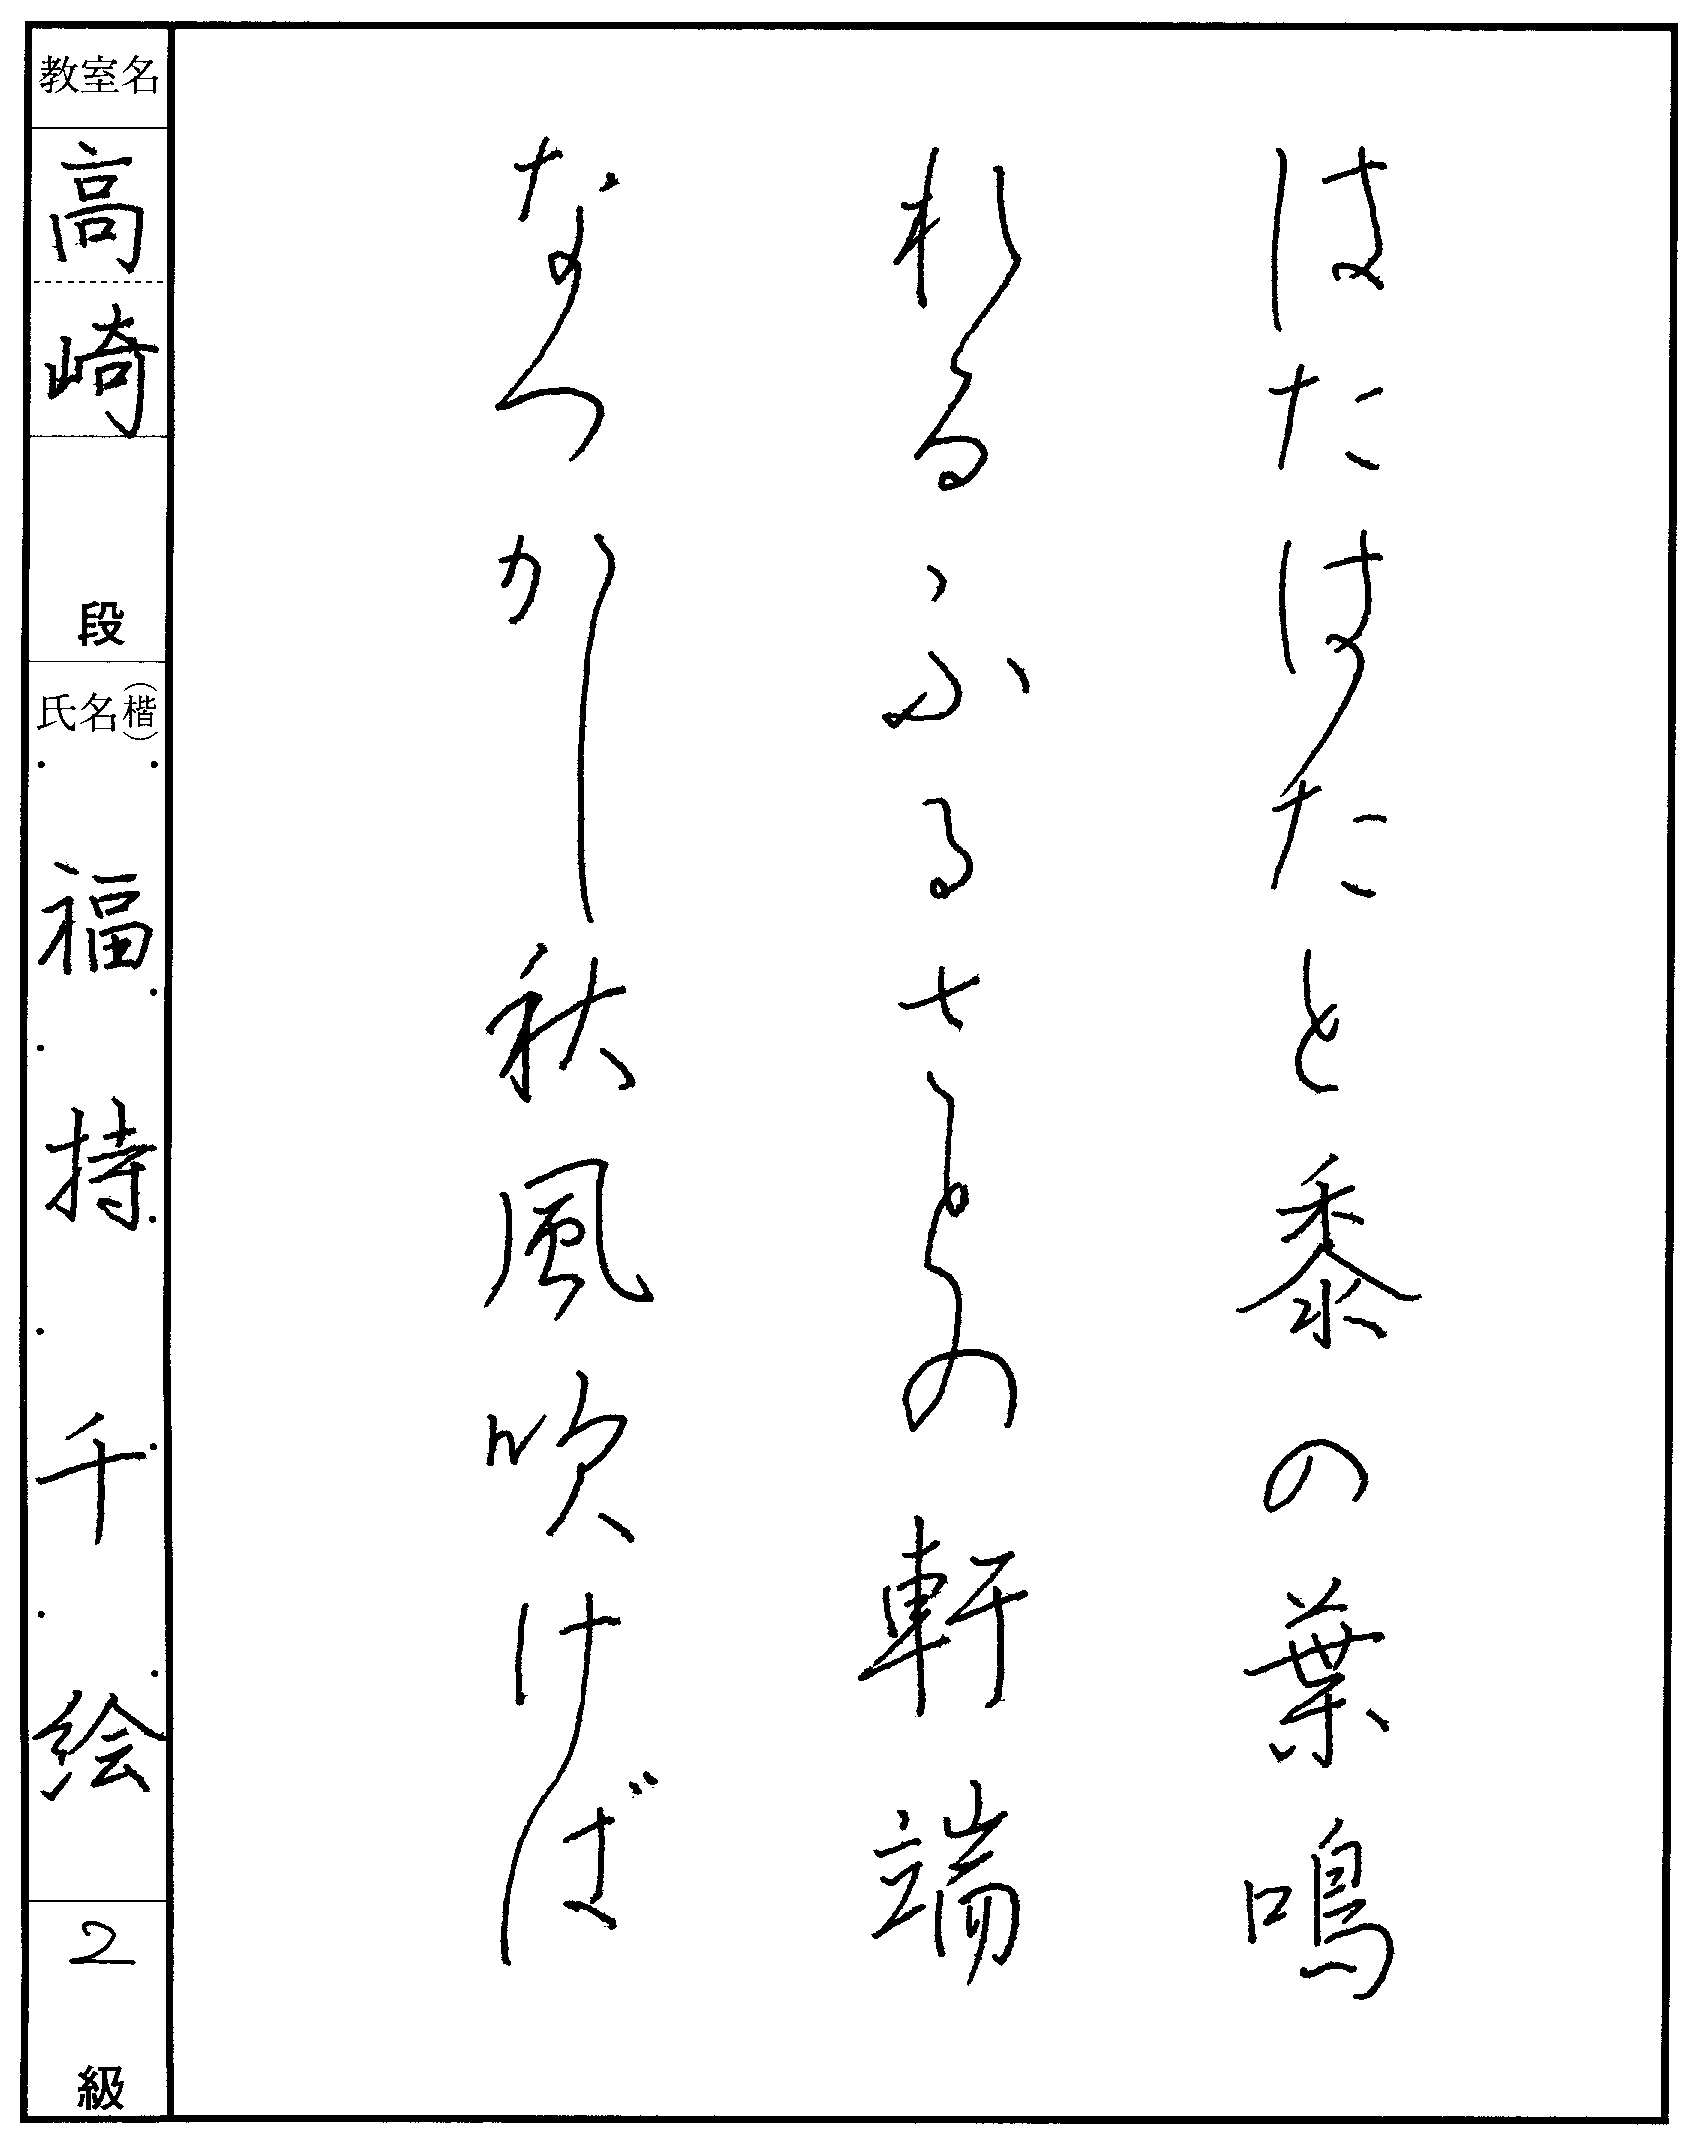 はたはたと黍の葉鳴
れるふるさとの軒端
なつかし秋風吹けば
教室名
高崎
段
氏名(楷)
福持千絵
2
級